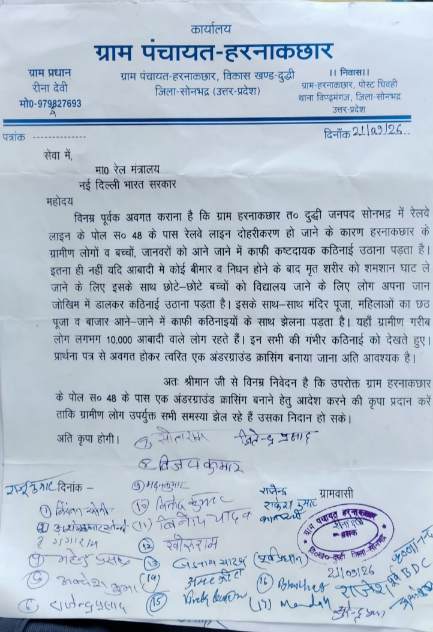 कार्यालय
ग्राम पंचायत-हरनाकछार
ग्राम प्रधान
रीना देवी
मो0-979827693
ग्राम पंचायत-हरनाकछार, विकास खण्ड-दुद्धी
जिला-सोनभद्र (उत्तर-प्रदेश)
।। निवास।।
ग्राम-हरनाकछार, पोस्ट
थाना विण्ढमगंज, जिला-सोनभद्र
उत्तर-प्रदेश
पत्रांक --------------
दिनाँक 21/09/26
सेवा में,
मा0 रेल मंत्रालय
नई दिल्ली भारत सरकार
महोदय
विनम्र पूर्वक अवगत कराना है कि ग्राम हरनाकछार त० दुद्धी जनपद सोनभद्र में रेलवे
लाइन के पोल स० 48 के पास रेलवे लाइन दोहरीकरण हो जाने के कारण हरनाकछार के
ग्रामीण लोगों व बच्चों, जानवरों को आने जाने में काफी कष्टदायक कठिनाई उठाना पड़ता है।
इतना ही नहीं यदि आबादी मे कोई बीमार व निधन होने के बाद मृत शरीर को शमशान घाट ले
जाने के लिए इसके साथ छोटे-छोटे बच्चों को विद्यालय जाने के लिए लोग अपना जान
जोखिम में डालकर कठिनाई उठाना पड़ता है। इसके साथ-साथ मंदिर पूजा, महिलाओं का छठ
पूजा व बाजार आने-जाने में काफी कठिनाइयों के साथ झेलना पड़ता है। यहाँ ग्रामीण गरीब
लोग लगभग 10.000 आबादी वाले लोग रहते हैं। इन सभी की गंभीर कठिनाई को देखते हुए।
प्रार्थना पत्र से अवगत होकर त्वरित एक अंडरग्राउंड क्रासिंग बनाया जाना अति आवश्यक है।
अतः श्रीमान जी से विनम्र निवेदन है कि उपरोक्त ग्राम हरनाकछार
के पोल स० 48 के पास एक अंडरग्राउंड क्रासिंग बनाने हेतु आदेश करने की कृपा प्रदान करें
ताकि ग्रामीण लोग उपर्युक्त सभी समस्या झेल रहे हैं उसका निदान हो सके।
अति कृपा होगी।
सीताराम
जितेन्द्र प्रसाद
विजय कुमार
दिनांक –
ग्रामवासी
राजेन्द्र
राकेश कुमार
(11) विनोद यादव
(12)
(14)
(15)
(16)
(17)
21/09/26
BDC